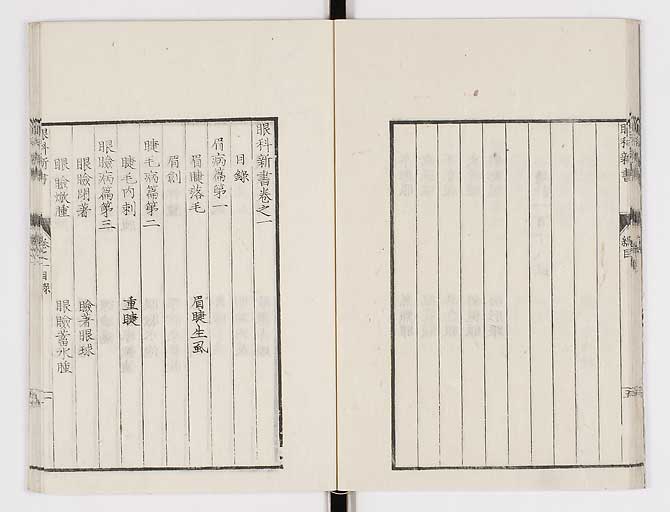 眼科新書
眼科新書卷之一
目錄
眉病篇第一
眉睫落毛 眉睫生虱
眉創
睫毛病篇第二
睫毛內刺 重睫
眼瞼病篇第三
眼瞼閉著 瞼著眼球
眼瞼焮腫 眼瞼蓄水腫
眼科新書 卷之一目錄 一